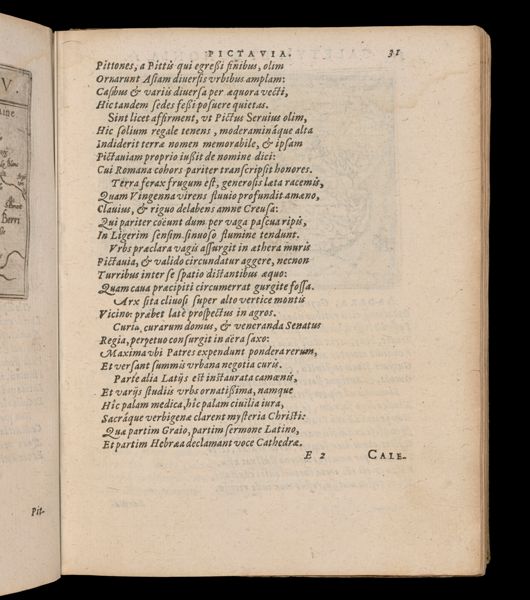 V.
ine
Berri
Pit-
PICTAVIA. 31
Pittones, a Pittis qui egreßi finibus, olim
Ornarunt Asiam diuersis vrbibus amplam:
Casibus & variis diuersa per æquora vecti,
Hic tandem sedes feßi posuere quietas.
Sint licet affirment, vt Pictus Seruius olim,
Hic solium regale tenens, moderamináque alta
Indiderit terræ nomen memorabile, & ipsam
Pictauiam proprio iußit de nomine dici:
Cui Romana cohors pariter transcripsit honores.
Terra ferax frugum est, generosis læta racemis,
Quam Vingenna virens fluuio profundit amœno,
Clauius, & riguo delabens amne Creusa:
Qui pariter coëunt dum per vaga pascua ripis,
In Ligerim sensim sinuoso flumine tendunt.
Vrbs præclara vagis assurgit in æthera muris
Pictauia, & valido circundatur aggere, necnon
Turribus inter se spatio distantibus æquo:
Quam caua præcipiti circumerrat gurgite fossa.
Arx sita cliuosi super alto vertice montis
Vicino: præbet latè prospectus in agros.
Curia, curarum domus, & veneranda Senatus
Regia, perpetuo consurgit in aëra saxo:
Maxima vbi Patres expendunt pondera rerum,
Et versant summis vrbana negotia curis.
Parte alia Latijs est instaurata camœnis,
Et varijs studiis vrbs ornatißima, namque
Hîc palam medica, hîc palam ciuilia iura,
Sacráque verbigenæ clarent mysteria Christi:
Quæ partim Graio, partim sermone Latino,
Et partim Hebræa declamant voce Cathedræ.
E 2 CALE-